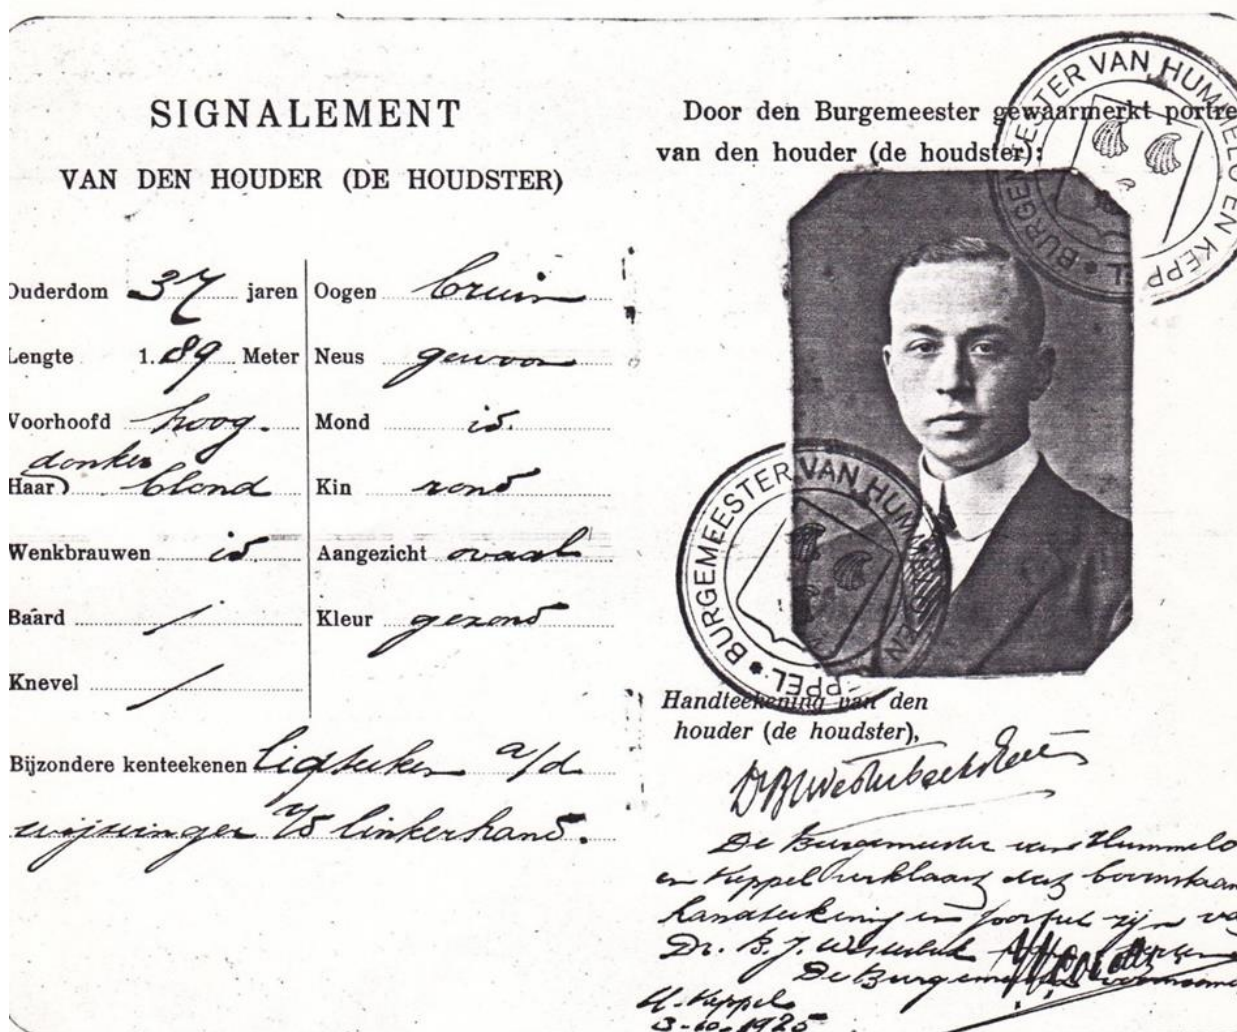 SIGNALEMENT
VAN DEN HOUDER (DE HOUDSTER)
Ouderdom 37 jaren
Lengte 1.89 Meter
Voorhoofd hoog.
donker
Haar blond
Wenkbrauwen id.
Baard /
Knevel /
Oogen bruin
Neus gewoon
Mond id.
Kin rond
Aangezicht ovaal
Kleur gezond
Bijzondere kenteekenen lidteeken a/d
wijsvinger v/d linkerhand.
Door den Burgemeester gewaarmerkt portre
van den houder (de houdster):
BURGEMEESTER VAN HUMMELO EN KEPPEL
BURGEMEESTER VAN HUMMELO EN KEPPEL
Handteekening van den
houder (de houdster),
De Burgemeester van Hummelo
en Keppel verklaart dat bovenstaan
handteekening en portret zijn va
Dr. B. J.
De Burgemeester voornoemd
H. Keppel
3-10-1925